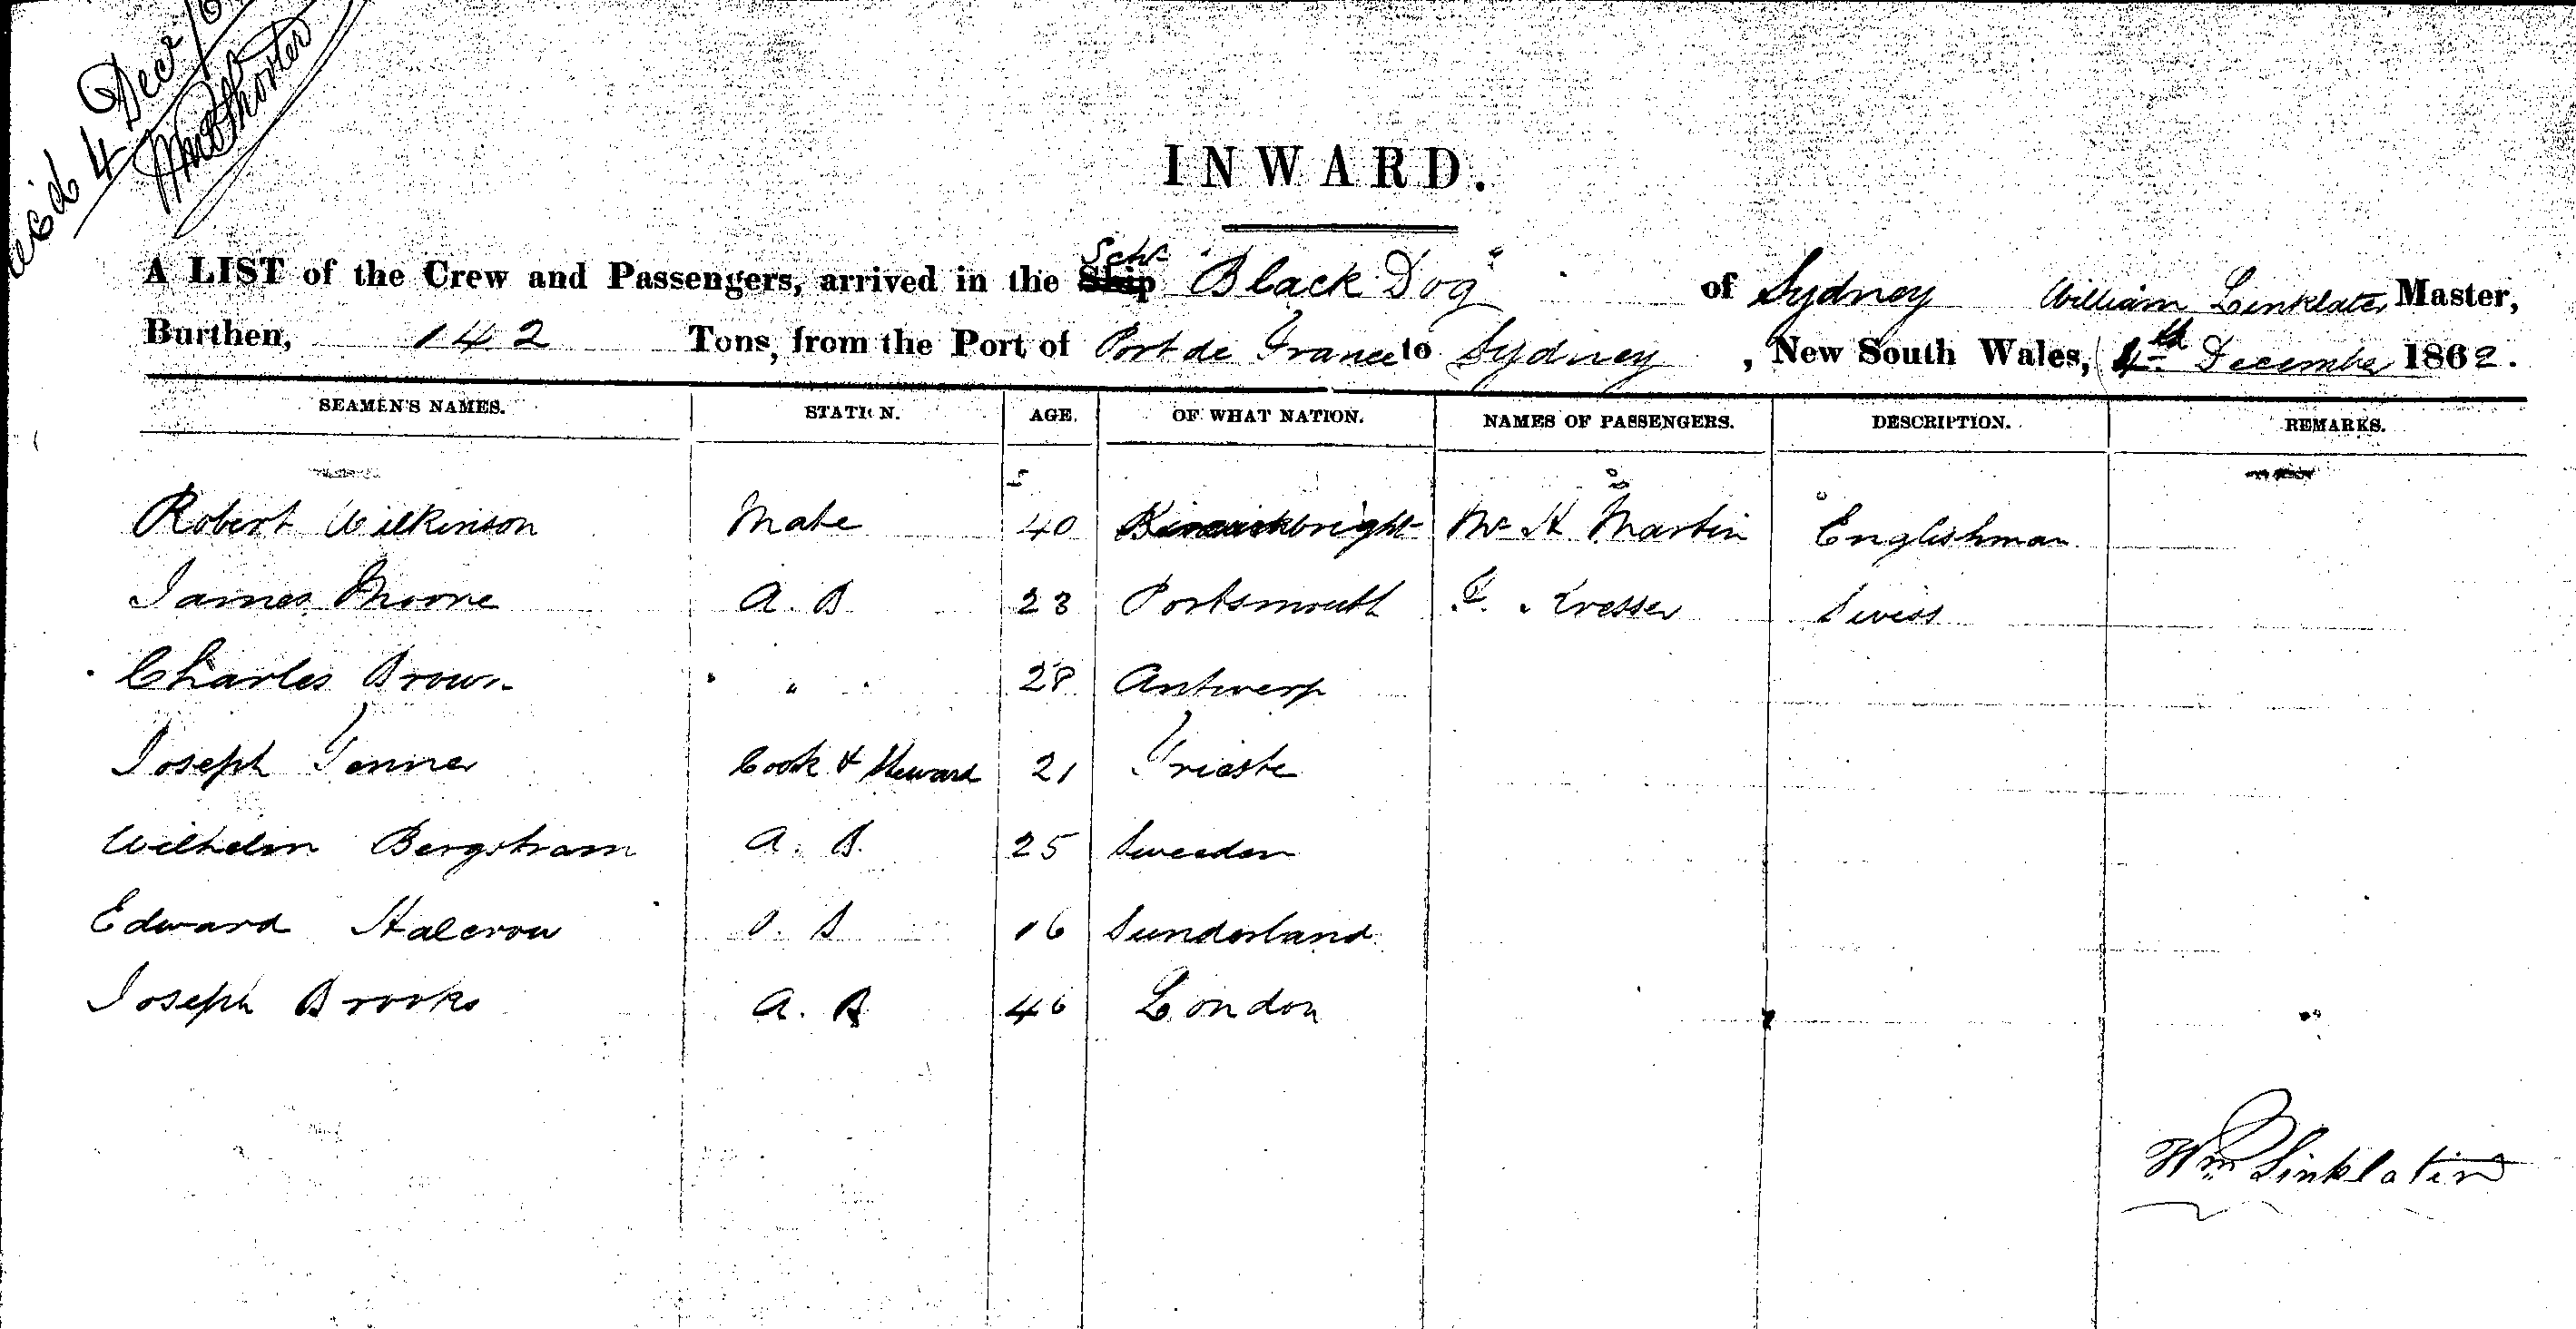 Rec'd 4 Dec /6
INWARD.
A LIST of the Crew and Passengers, arrived in the Ship Schr "Black Dog" of Sydney William Linklater Master,
Burthen, 142 Tons, from the Port of Port de France to Sydney, New South Wales, 4th December 1862.
SEAMEN'S NAMES. STATION. AGE. OF WHAT NATION. NAMES OF PASSENGERS. DESCRIPTION. REMARKS.
Robert Wilkinson Mate 40 Mr H Martin Englishman
James Moore A. B 23 Portsmouth F. Kresser Swiss
Charles Brown " 28 Antwerp
Joseph Tenner Cook & Steward 21 Trieste
Wilhelm Bergstram A. B. 25 Sweeden
Edward Halcrow O. S 16 Sunderland
Joseph Brooks A. B 46 London
Wm Linklater